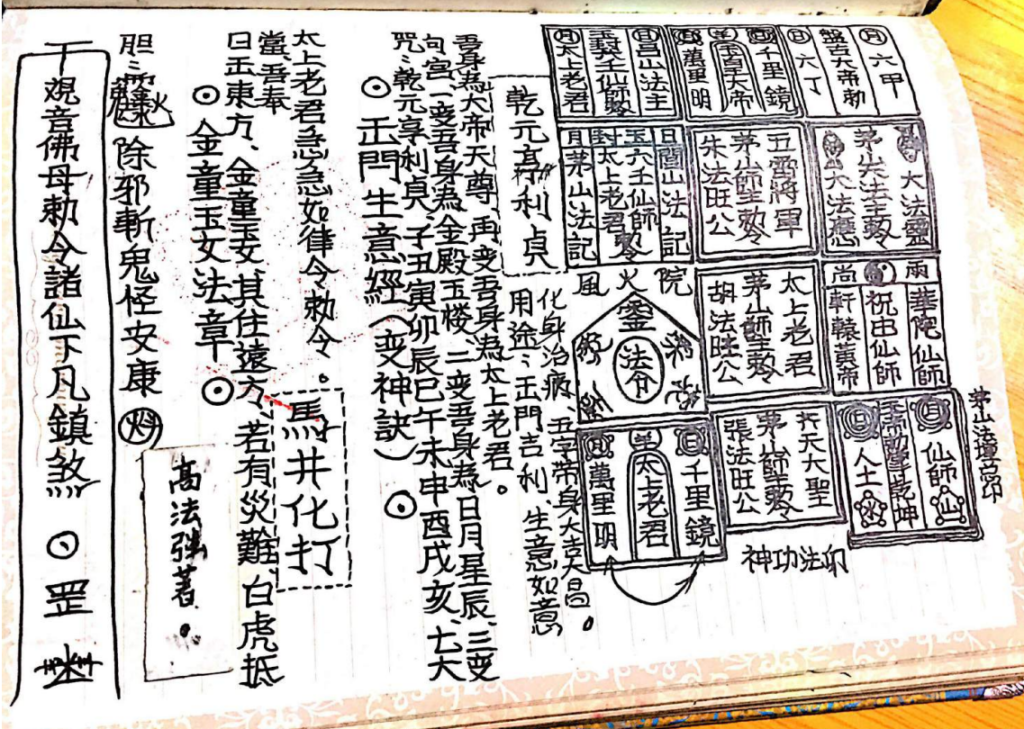 月六甲
盤古大帝勅
日六丁
千里鏡
玉皇大帝
萬里明
日昌山法主
月太上老君
大法靈
茅山法主敕
大法應
五雷將軍
茅山師主敕
朱法旺公
日閭山法記
玉六壬仙師敕
封太上老君
月茅山法記
雨華陀仙師
祝由仙師
尚軒轅黃帝
太上老君
茅山師主敕
胡法旺公
院
火
風
法令
仙師山
人土火
齊天大聖
茅山師主敕
張法旺公
千里鏡
太上老君
萬里明
茅山法壇宮印
神功法印
乾元亨利貞
化身治病、五字帶身大吉大昌。
用途:正門吉利、生意如意
吾身為大帝天尊、再变吾身為太上老君。
句宫一变吾身為金殿玉楼、二变吾身為日月星辰、三变
咒:乾元享利贞、子丑寅卯辰巳午未申酉戌亥、七大
⊙正門生意經(变神訣)⊙
太上老君急急如律令勅令。
馬井化打
當吾奉
日正東方、金童玉女其住遠方、若有災難白虎抵
⊙金童玉女法章⊙
胆:
除邪斬鬼怪安康
高法強著。
觀音佛母勅令諸仙下凡鎮煞⊙罡